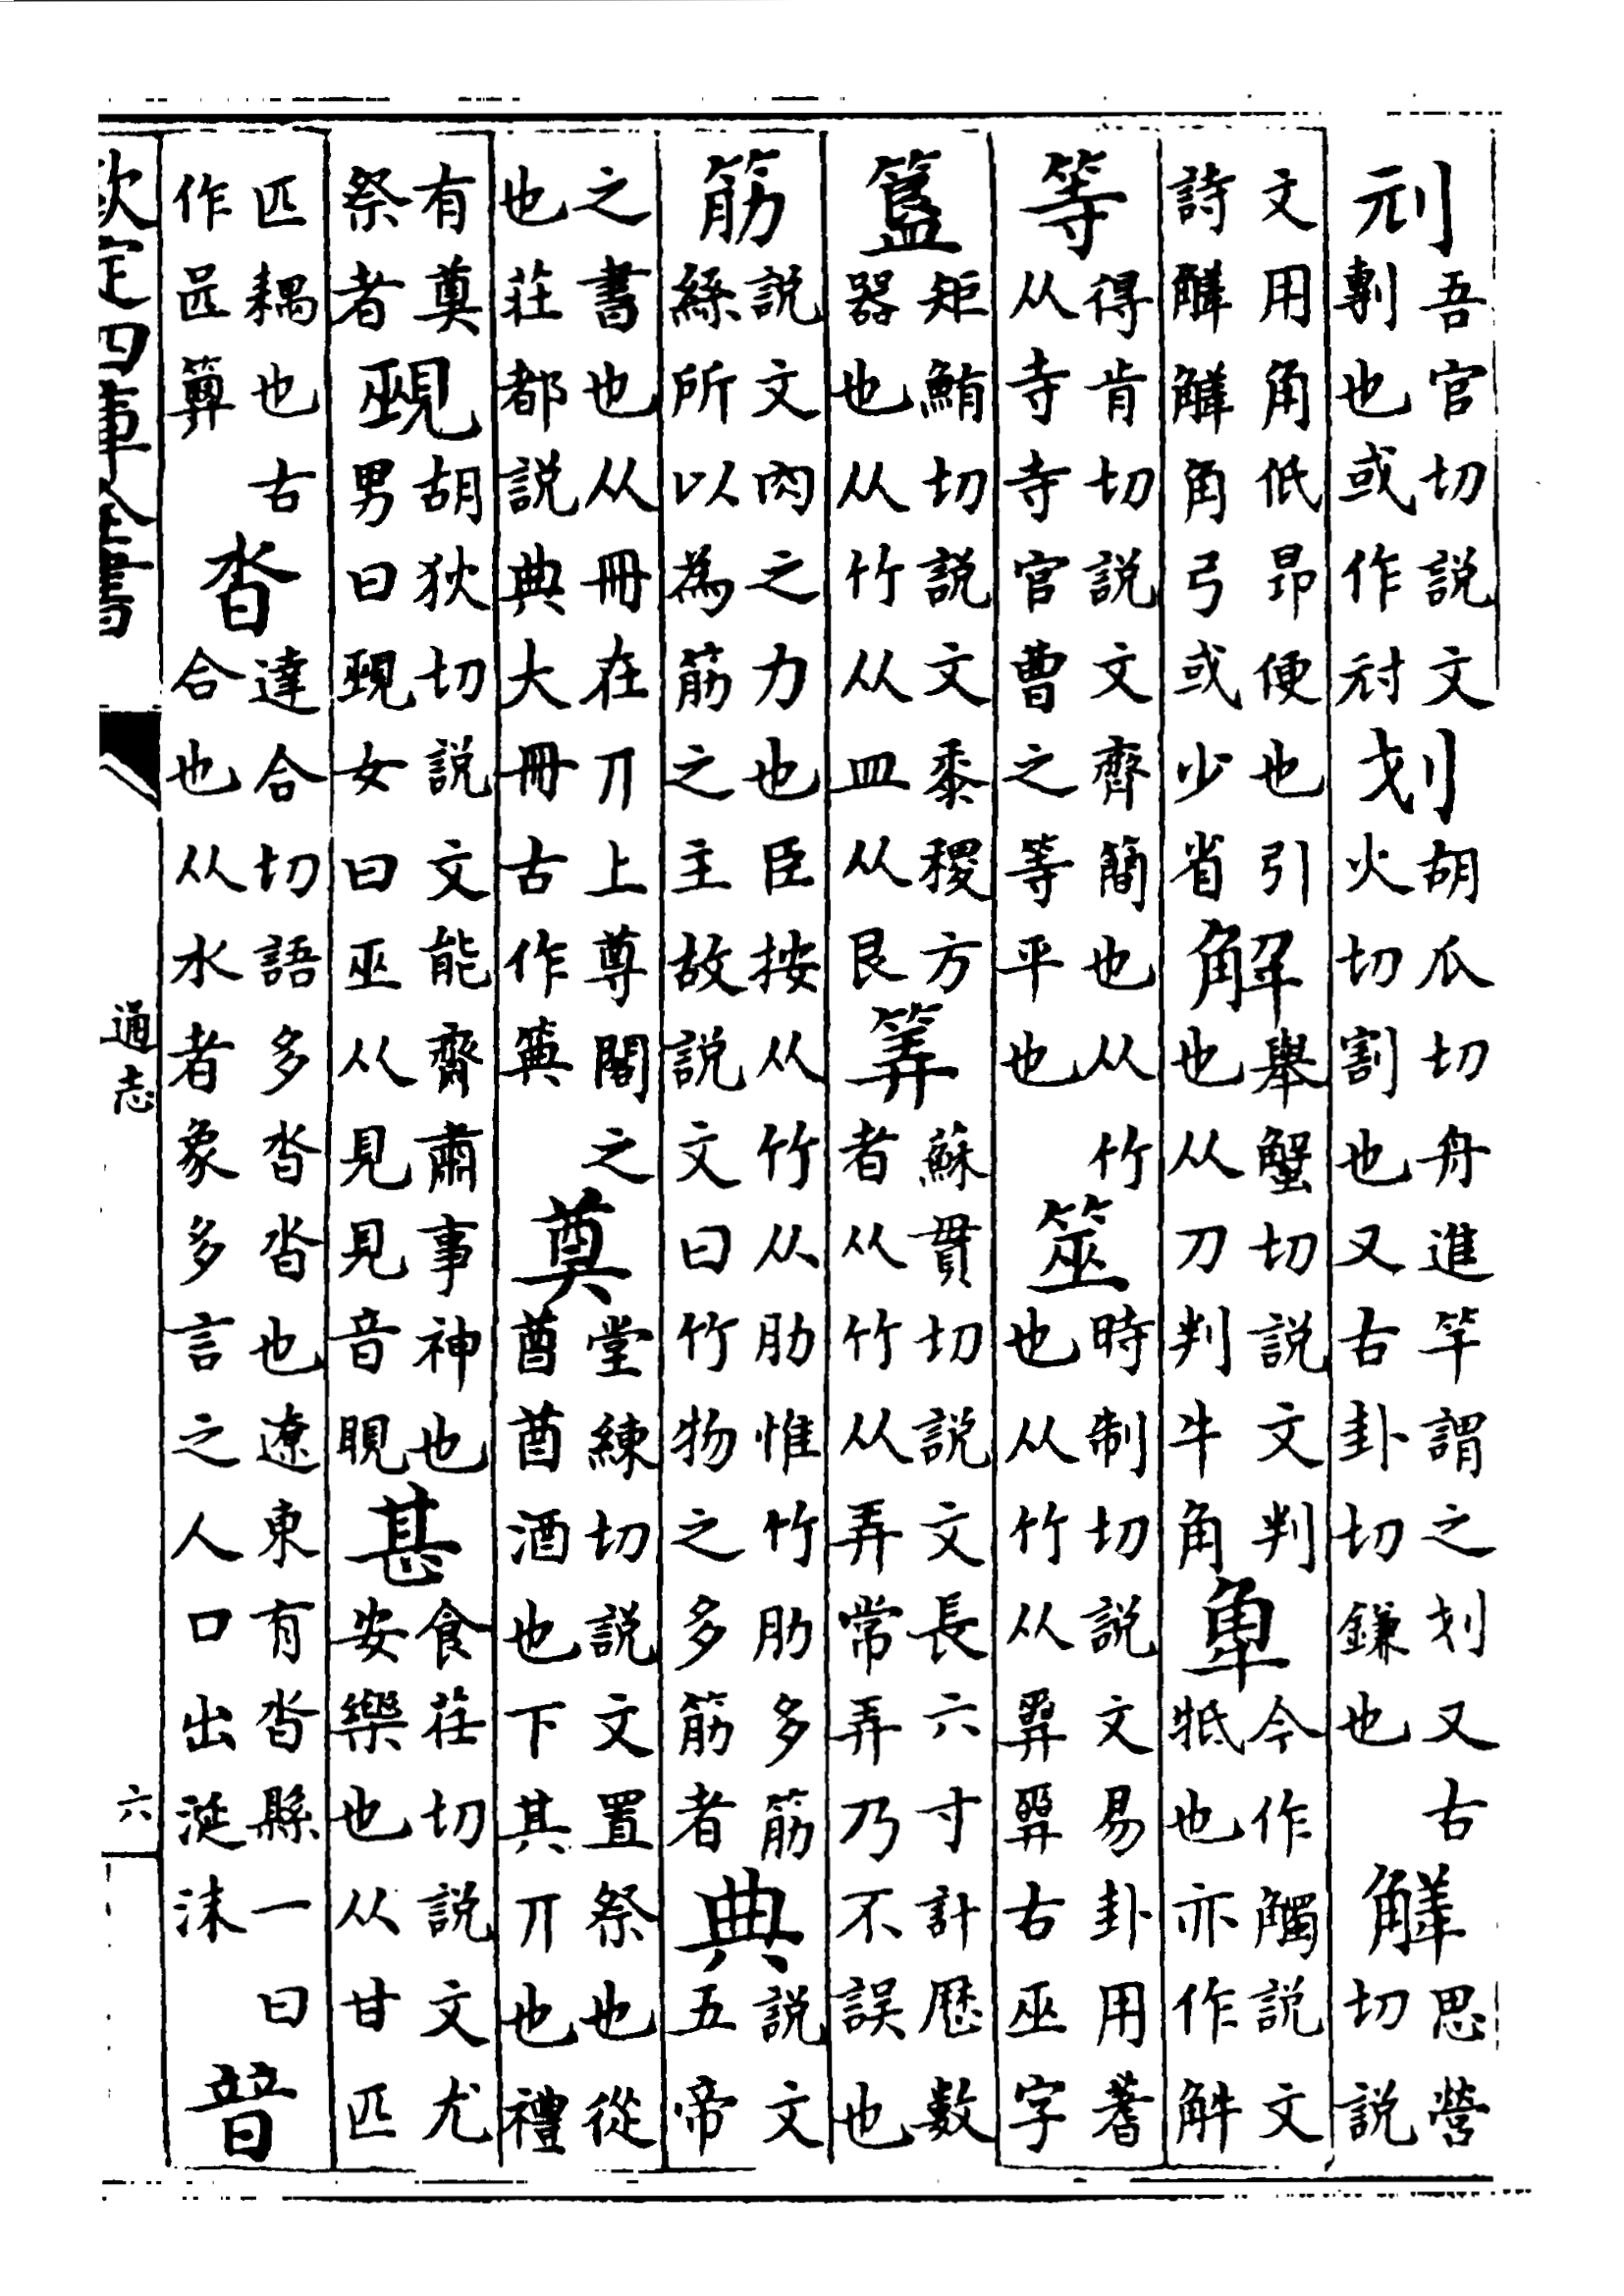 刓吾官切説文剸也或作划胡瓜切舟進竿謂之划又古火切割也又古卦切鎌也觲思營切説
文用角低昂便也引詩觲觲角弓或少省解舉蟹切説文判也从刀判牛角今作觸説文牴也亦作觧
等得肯切説文齊簡也从竹从寺寺官曹之等等平也筮時制切説文易卦用蓍也从竹从𢍁𢍁古巫字
簋矩鮪切説文黍稷方器也从竹从皿从艮筭蘇貫切説文長六寸計歴數者从竹竹从弄常弄乃不誤也
筋説文肉之力也臣按从竹从肋惟竹肋多筋絲所以為筋之主故説文曰竹物之多筋者典説文五帝
之書也从冊在丌上尊閣之也莊都説典大冊古作𥮏奠堂練切説文置祭也從酋酋酒也下其丌也禮
有奠祭者覡胡狄切説文能齊肅事神也男曰覡女曰巫从見見音甚食荏切説文尤安樂也从甘匹
匹耦也古作沓達合切語多沓沓也遼東有沓縣一曰合也从水者象多言之人口出涎沫暜
欽定四庫全書
通志
六